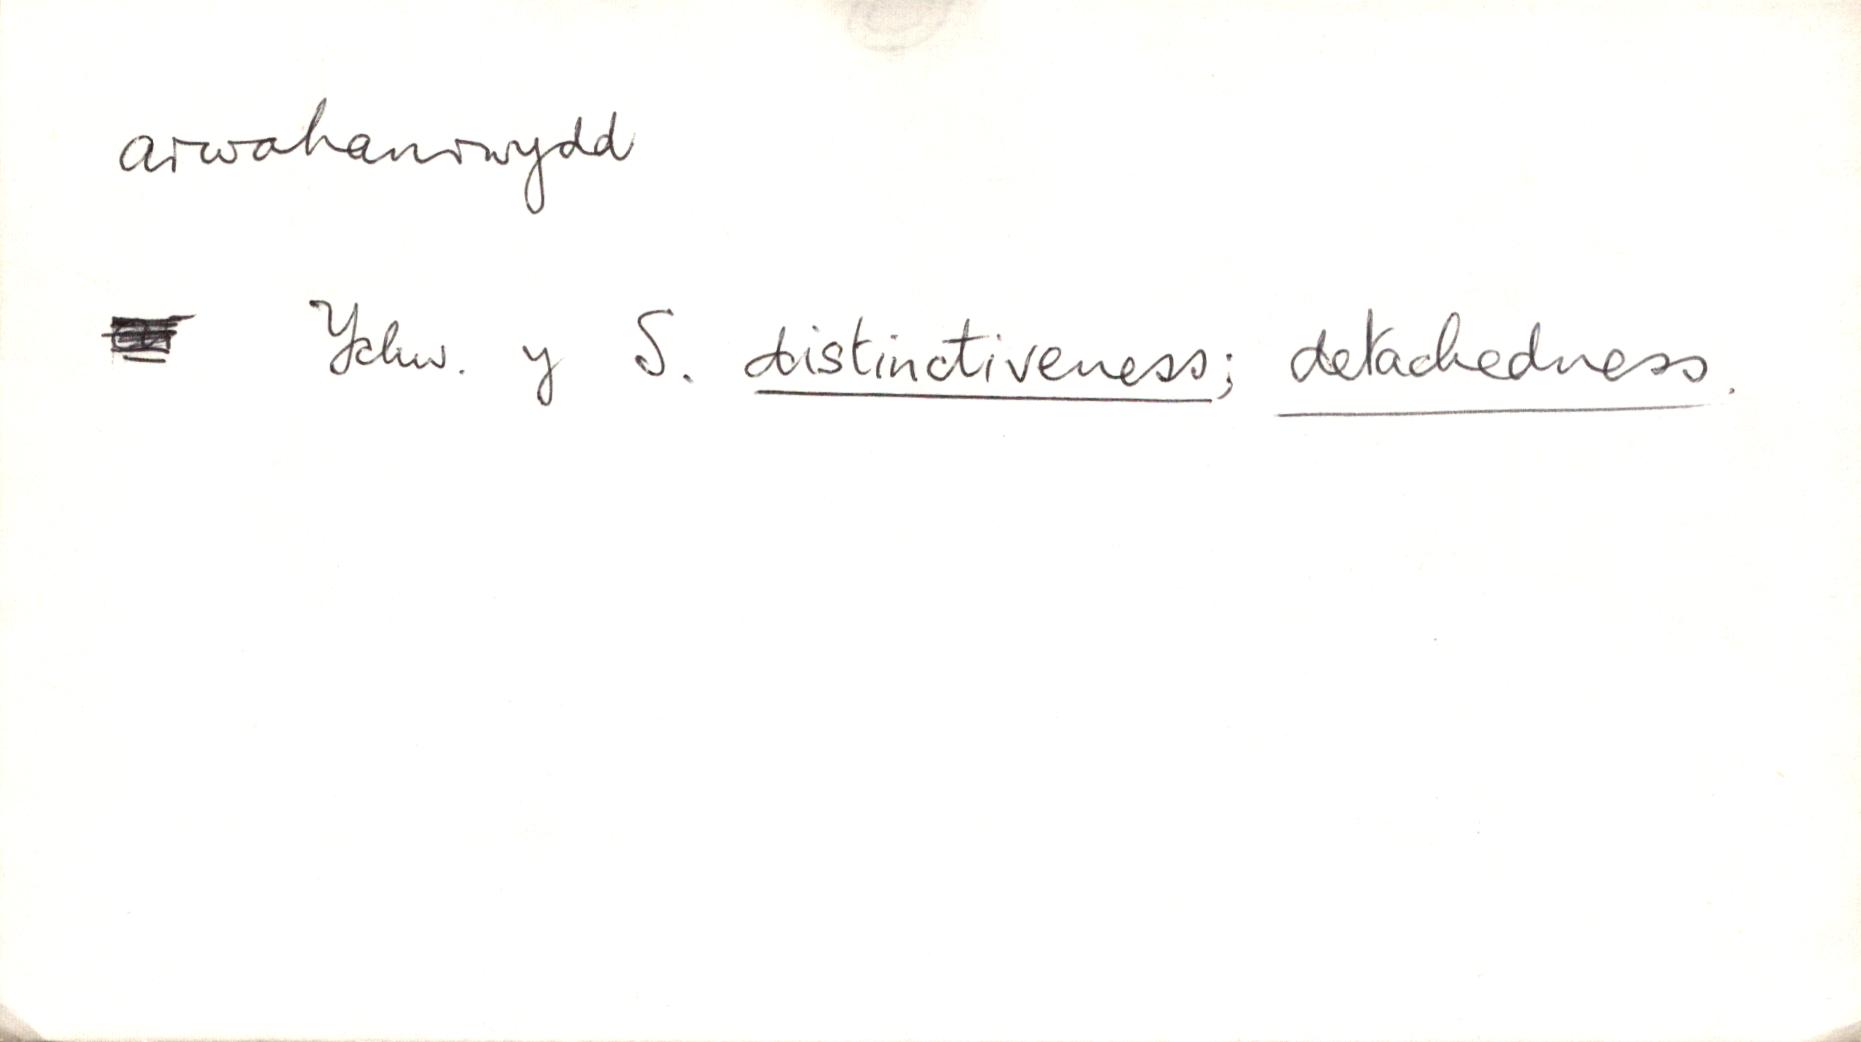 arwahanrwydd
Ychw. y S. distinctiveness; detachedness.